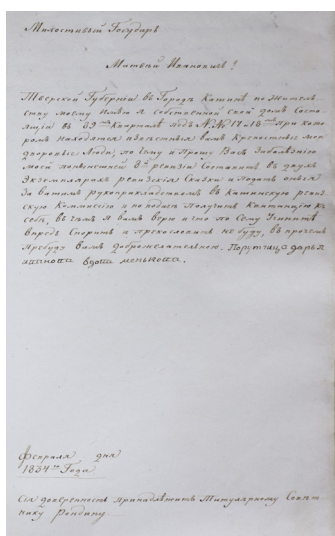 Милостивый Государь
Матвей Ивановичь!
Тверской Губернии въ Городѣ Кашинѣ по Житель
ству моему имѣя я собственной свой домъ Состо
ящій въ 39м Кварталѣ подъ №№ 17 и 18м При кото
ромъ находятся извѣстныя вамъ Крепостные мои
дворовые Люди; по чему и прошу Васъ
моей нынешней 8й ревизіи Составить въ двухъ
Экземплярахъ ревизскія Сказки и Подать оныя
За вашимъ рукоприкладствомъ въ Кашинскую ревиз
скую Коммисію и по подаче Получить Квитанцію къ
себѣ, въ чемъ я вамъ верю и что по Сему Учините
впредь Спорить и прекословить не буду, въ протчемъ
Пребуду вамъ доброжелательною, Порутчица дарья
вдова менькова.
Февраля дня
1834го Года
Сія доверенность принадлежитъ Титулярному Совѣт
нику Рондину